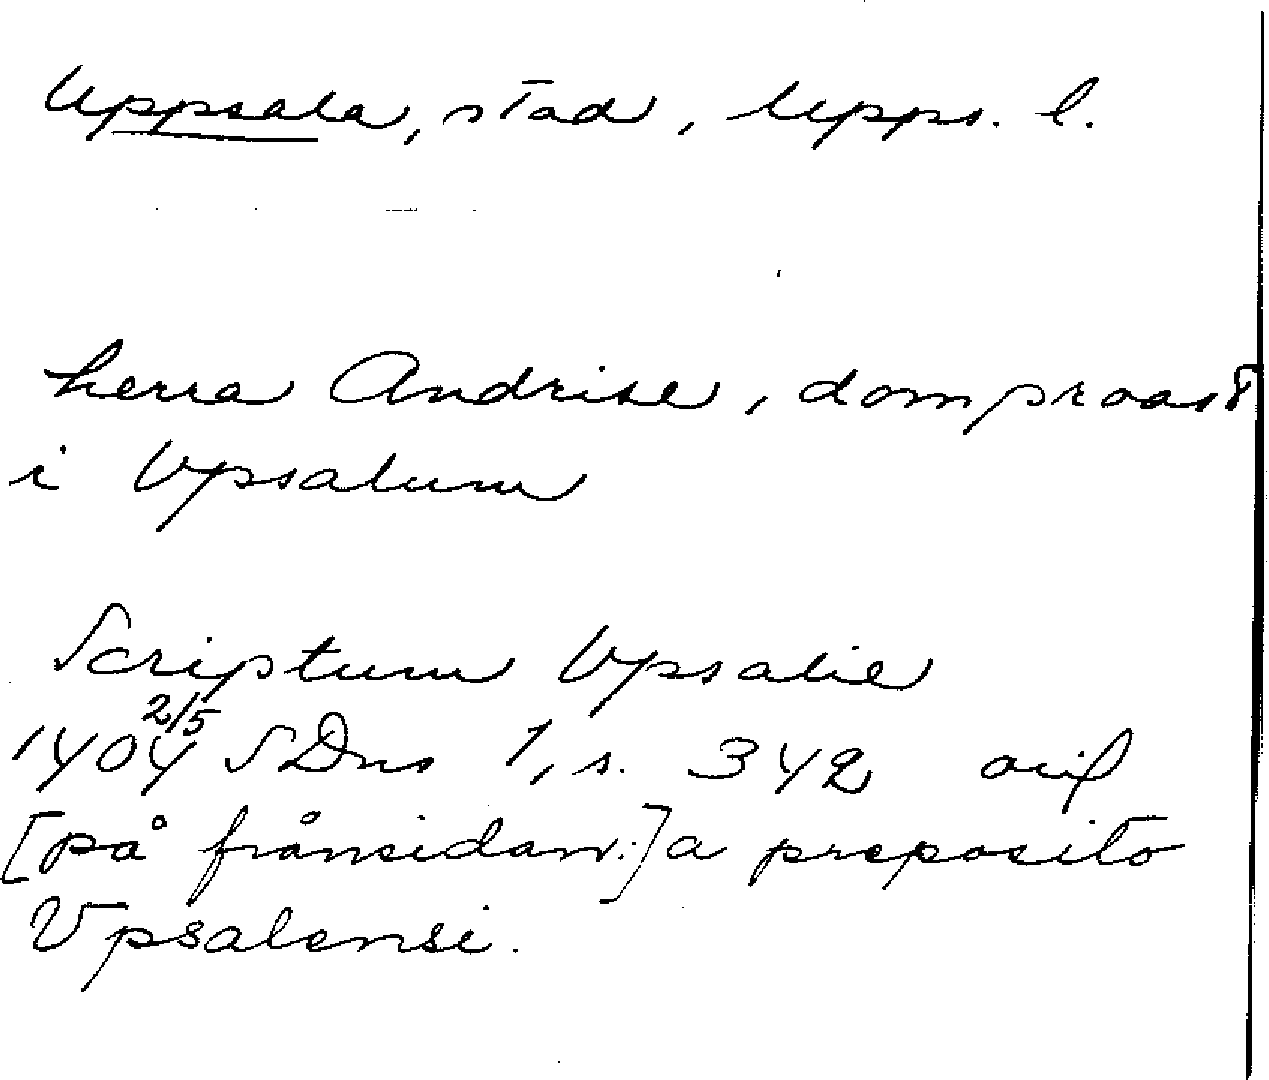 Uppsala, stad, Upps. l.
herra Andrise, domproast
i Vpsalum
Scriptum Vpsalie
1404 2/5 SDns 1, s. 342 orig
[på frånsidan:] a preposito
Vpsalensi.